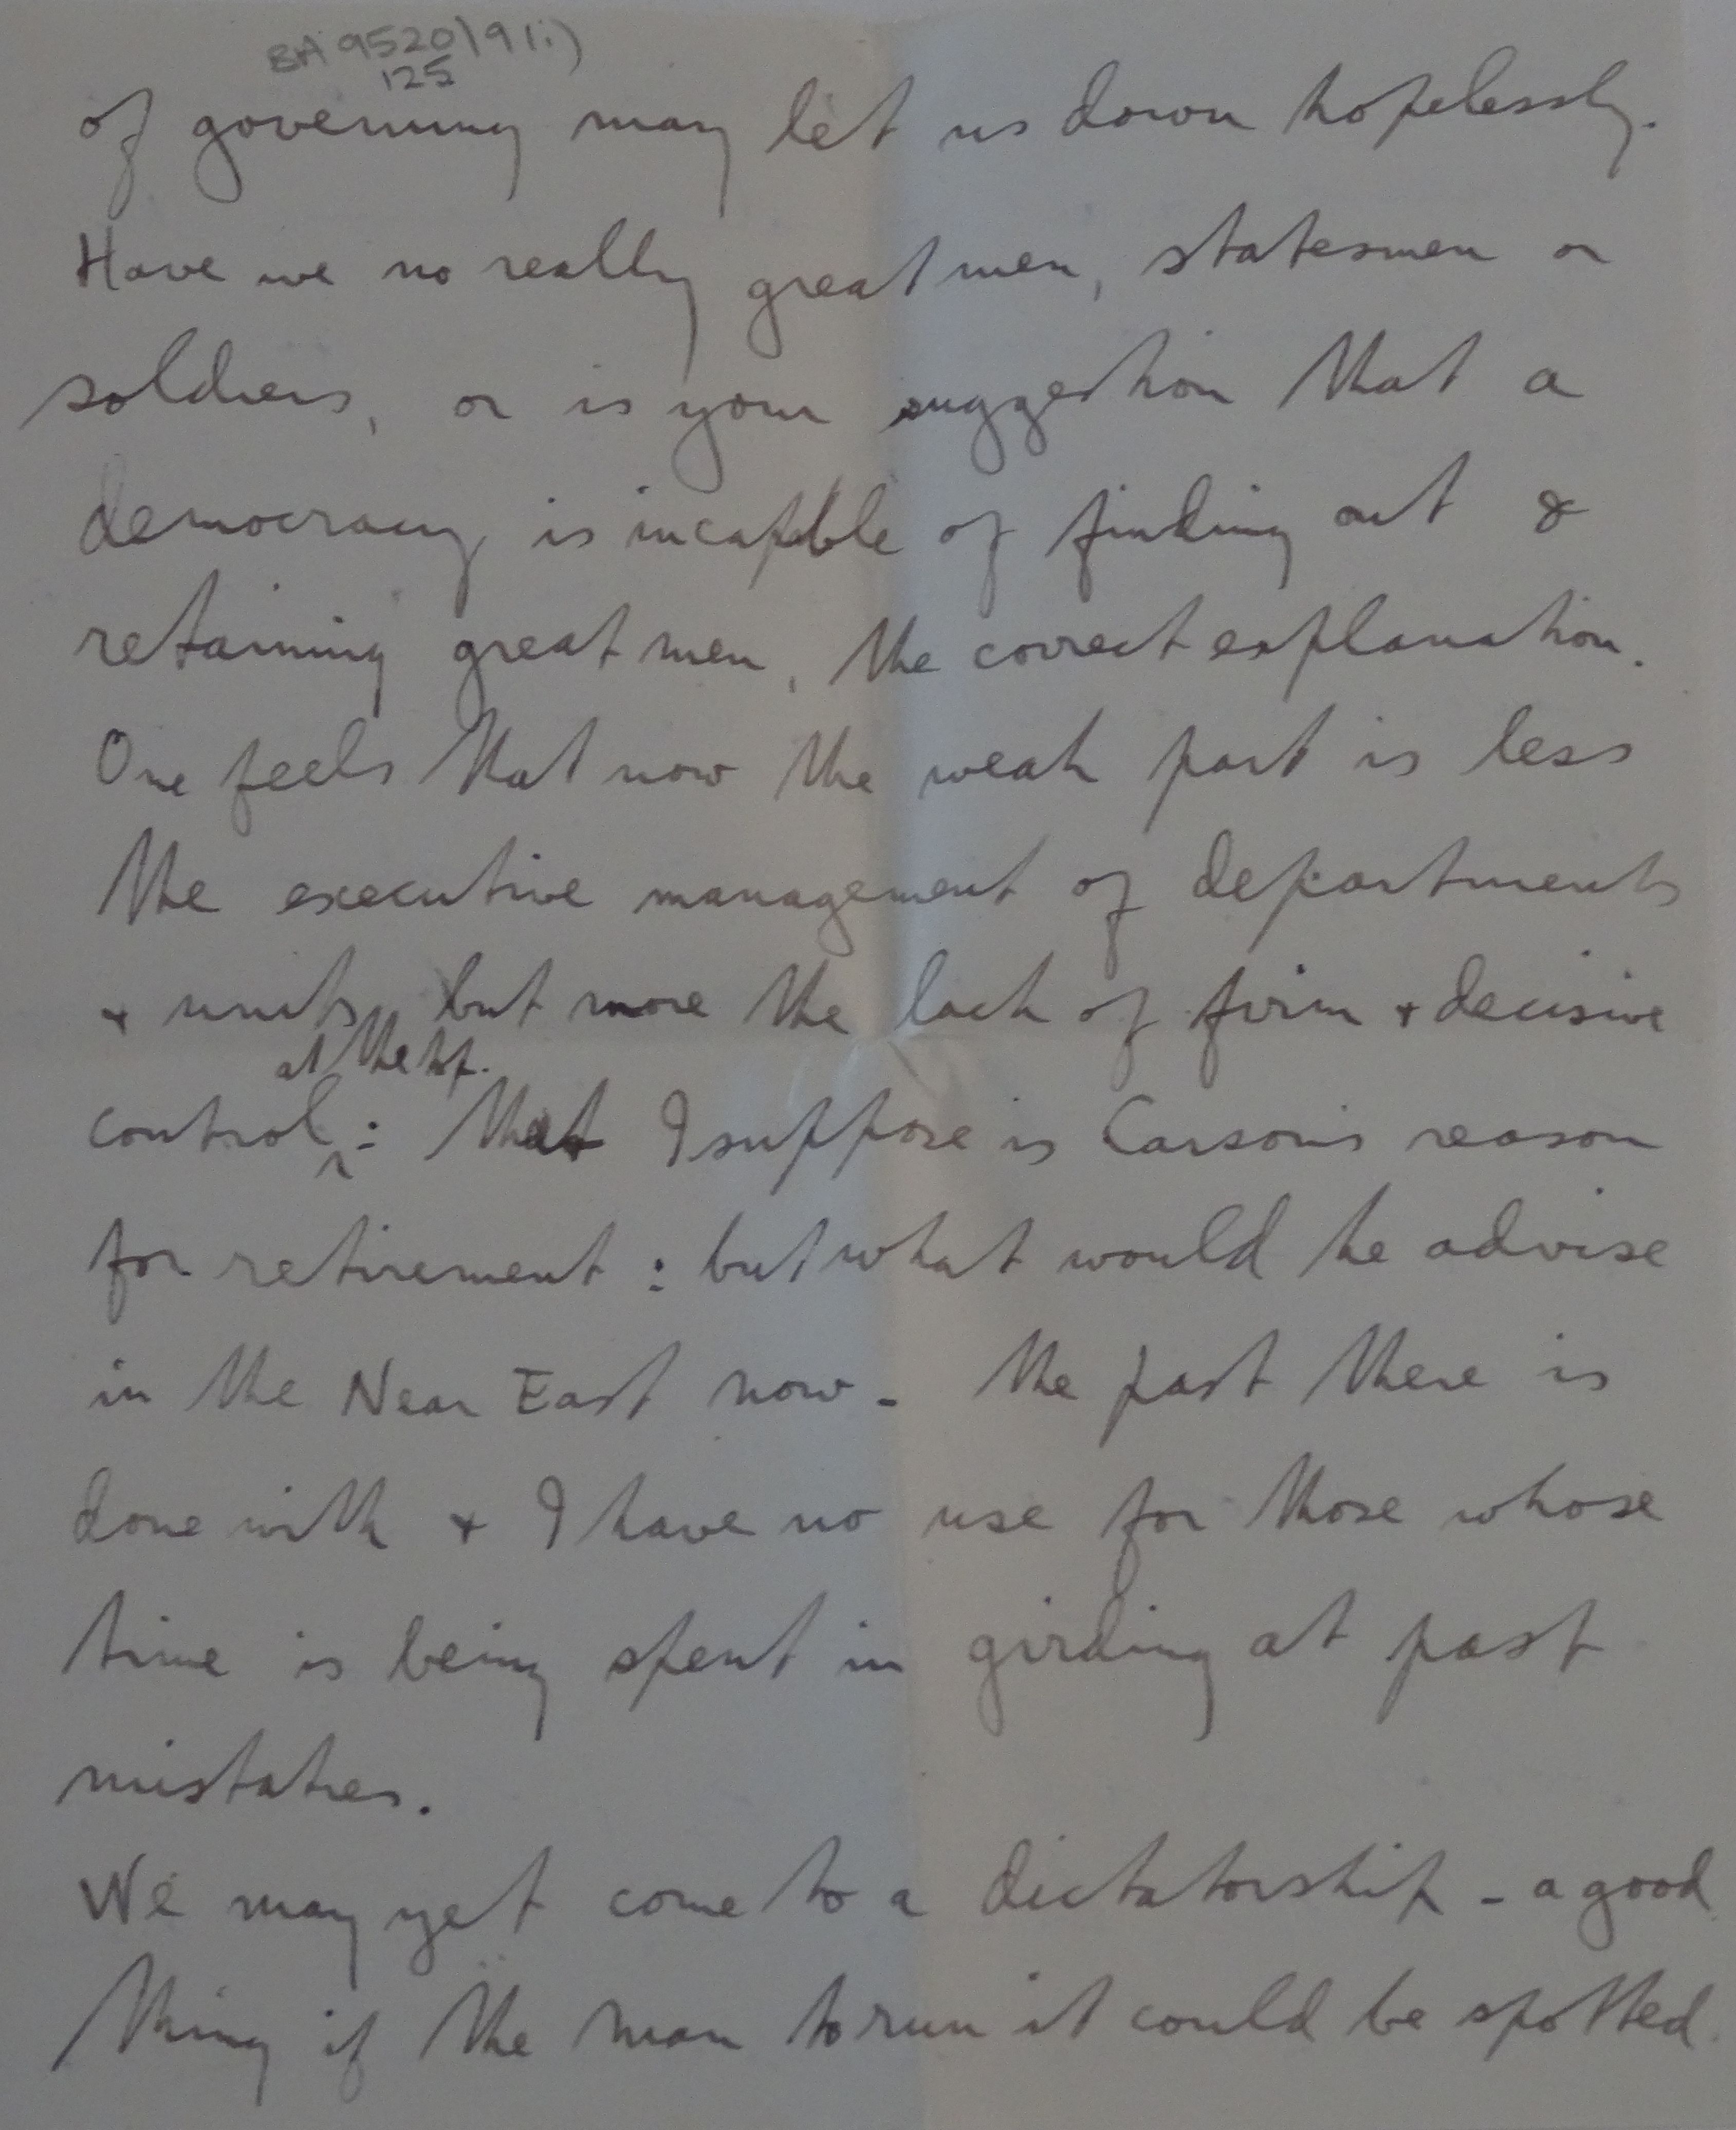 BA 9520/9(i)
125
of governing may let us down hopelessly.
Have we no really great men, statesmen or
soldiers, or is your suggestion that a
democracy is incapable of finding out &
retaining great men, the correct explanation.
One feels that now the weak part is less
the executive management of departments
+ units, but more the lack of firm + decisive
at the top.
control : that I suppose is Carson's reason
for retirement : but what would he advise
in the Near East now - the past there is
done with + I have no use for those whose
time is being spent in girding at past
mistakes.
We may yet come to a dictatorship - a good
thing if the man to run it could be spotted.